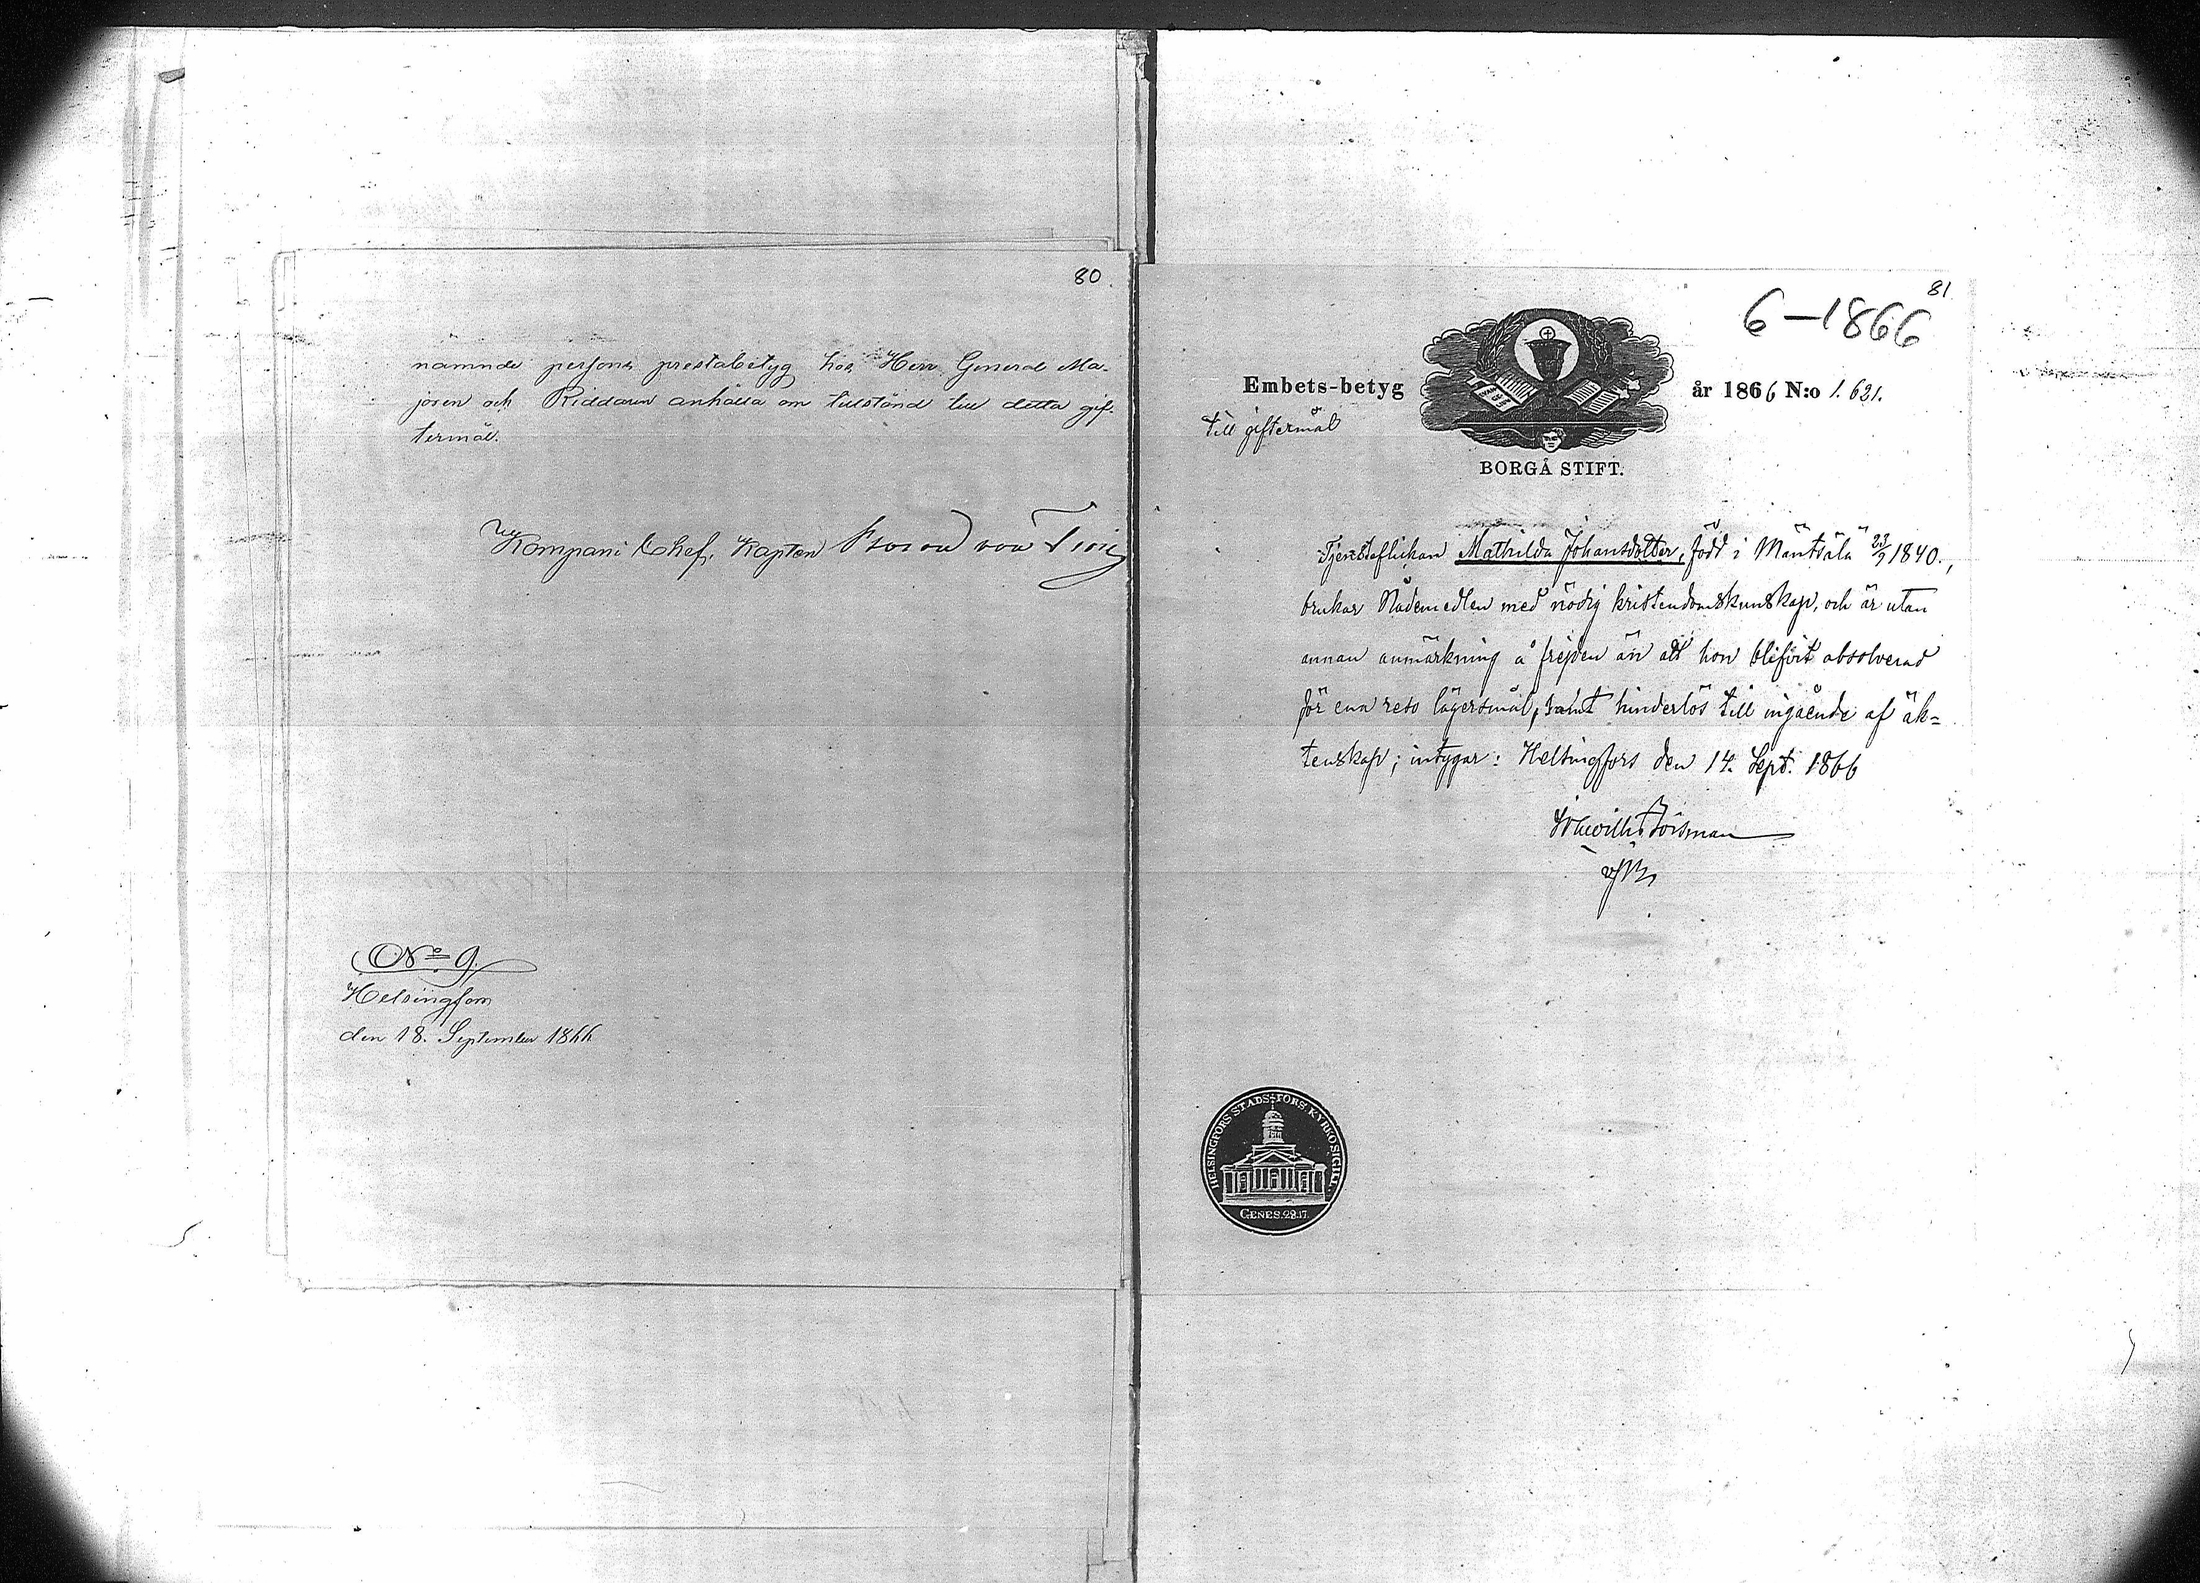 80.
namnde persons prestabetyg hos Herr General Ma-
joren och Riddaren anhålla om tillstånd till detta gif-
termål.
Kompani Chef, Kapten
No 9.
Helsingfors
den 18. September 1866
81
6-1866
Embets-betyg år 1866 N:o 1.621.
till giftermål
BORGÅ STIFT.
Tjensteflickan Mathilda Johansdotter, född i Mäntsälä 23/9 1840.,
brukar Nådemedlen med nödig kristendomskunskap, och är utan
annan anmärkning å frejden än att hon blifvit absolverad
för ena reso lägersmål, samt hinderlös till ingående af äk=
tenskap; intygar: Helsingfors den 14. Sept. 1866
HELSINGFORS STADS-FÖRS. KYRKO SIGILL
GENES.28.17.